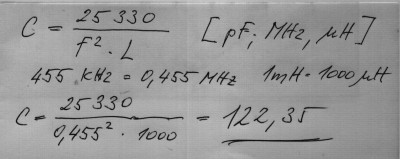 C = 25 330 / F² · L [pF; MHz, μH]
455 KHz = 0,455 MHz 1mH = 1000 μH
C = 25 330 / 0,455² · 1000 = 122,35